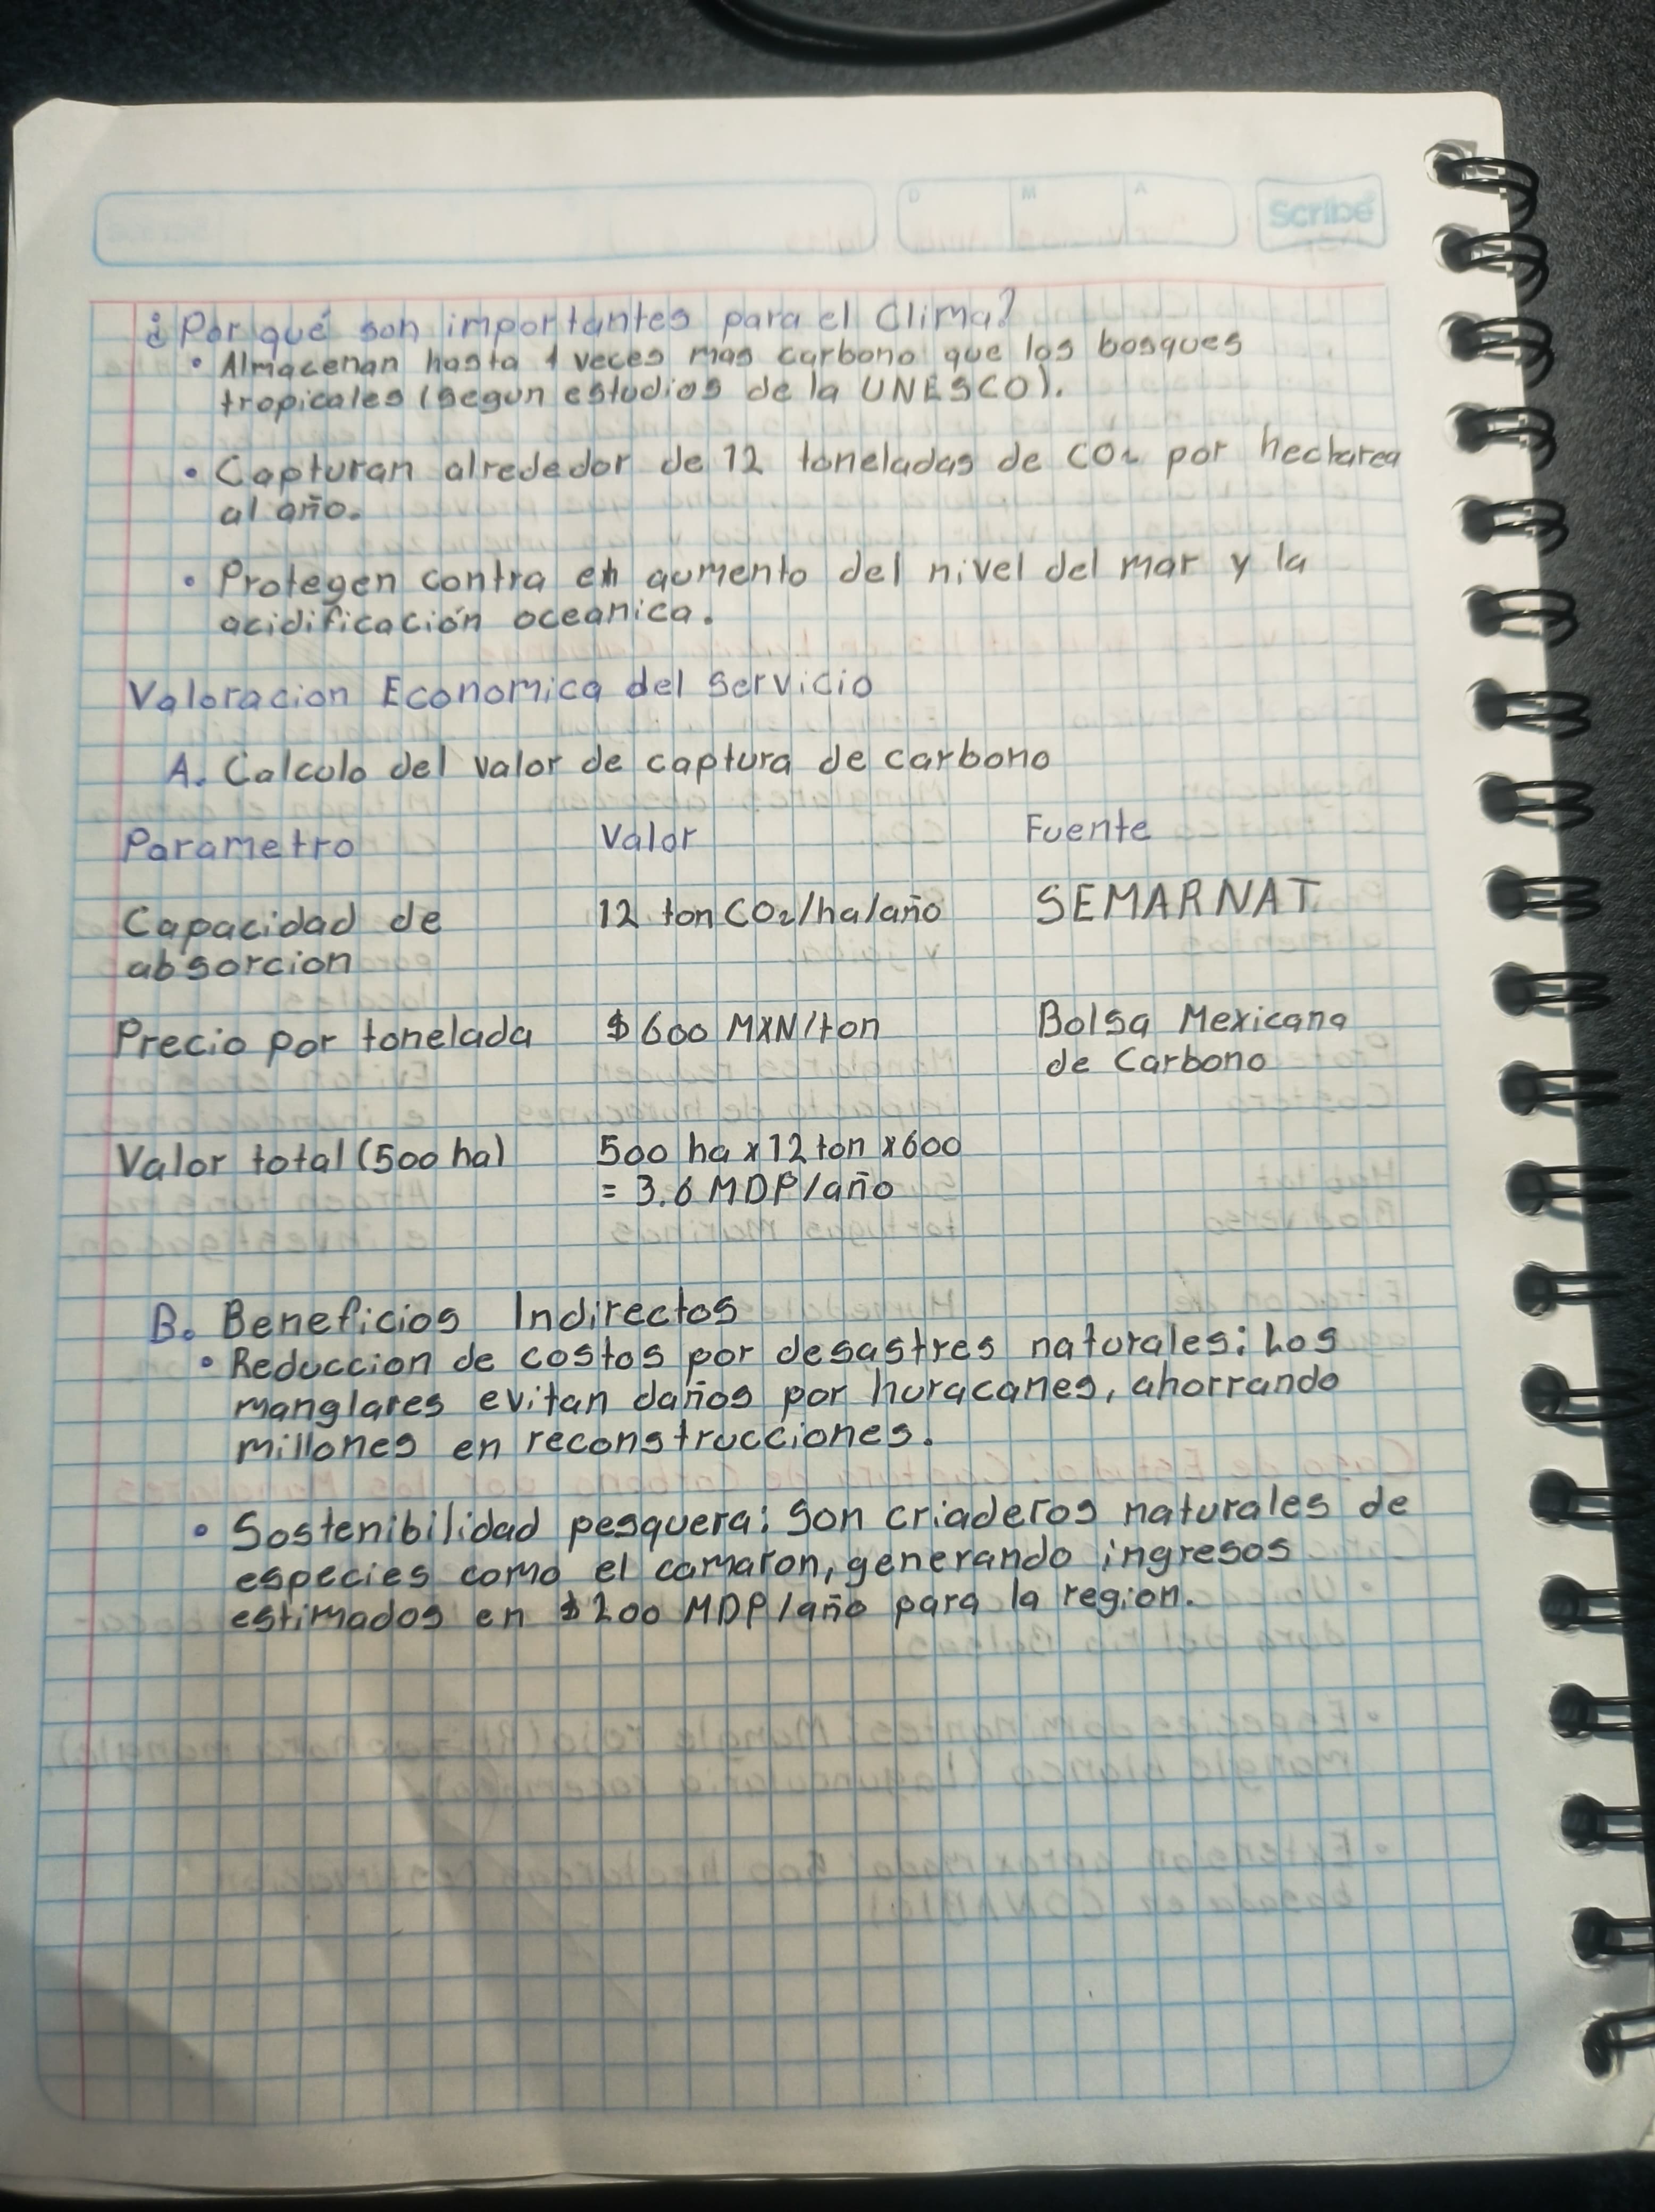 D M A Scribe
¿Por qué son importantes para el Clima?
• Almacenan hasta 4 veces mas carbono que los bosques
tropicales (segun estudios de la UNESCO).
• Capturan alrededor de 12 toneladas de CO2 por hectarea
al año.
• Protegen contra en aumento del nivel del mar y la
acidificación oceanica.
Valoracion Economica del Servicio
A. Calculo del valor de captura de carbono
Parametro Valor Fuente
Capacidad de 12 ton CO2/ha/año SEMARNAT
absorcion
Precio por tonelada $600 MXN/ton Bolsa Mexicana
de Carbono
Valor total (500 ha) 500 ha x 12 ton x 600
= 3.6 MDP/año
B. Beneficios Indirectos
• Reduccion de costos por desastres naturales: Los
manglares evitan daños por huracanes, ahorrando
millones en reconstrucciones.
• Sostenibilidad pesquera: Son criaderos naturales de
especies como el camaron, generando ingresos
estimados en $200 MDP/año para la region.